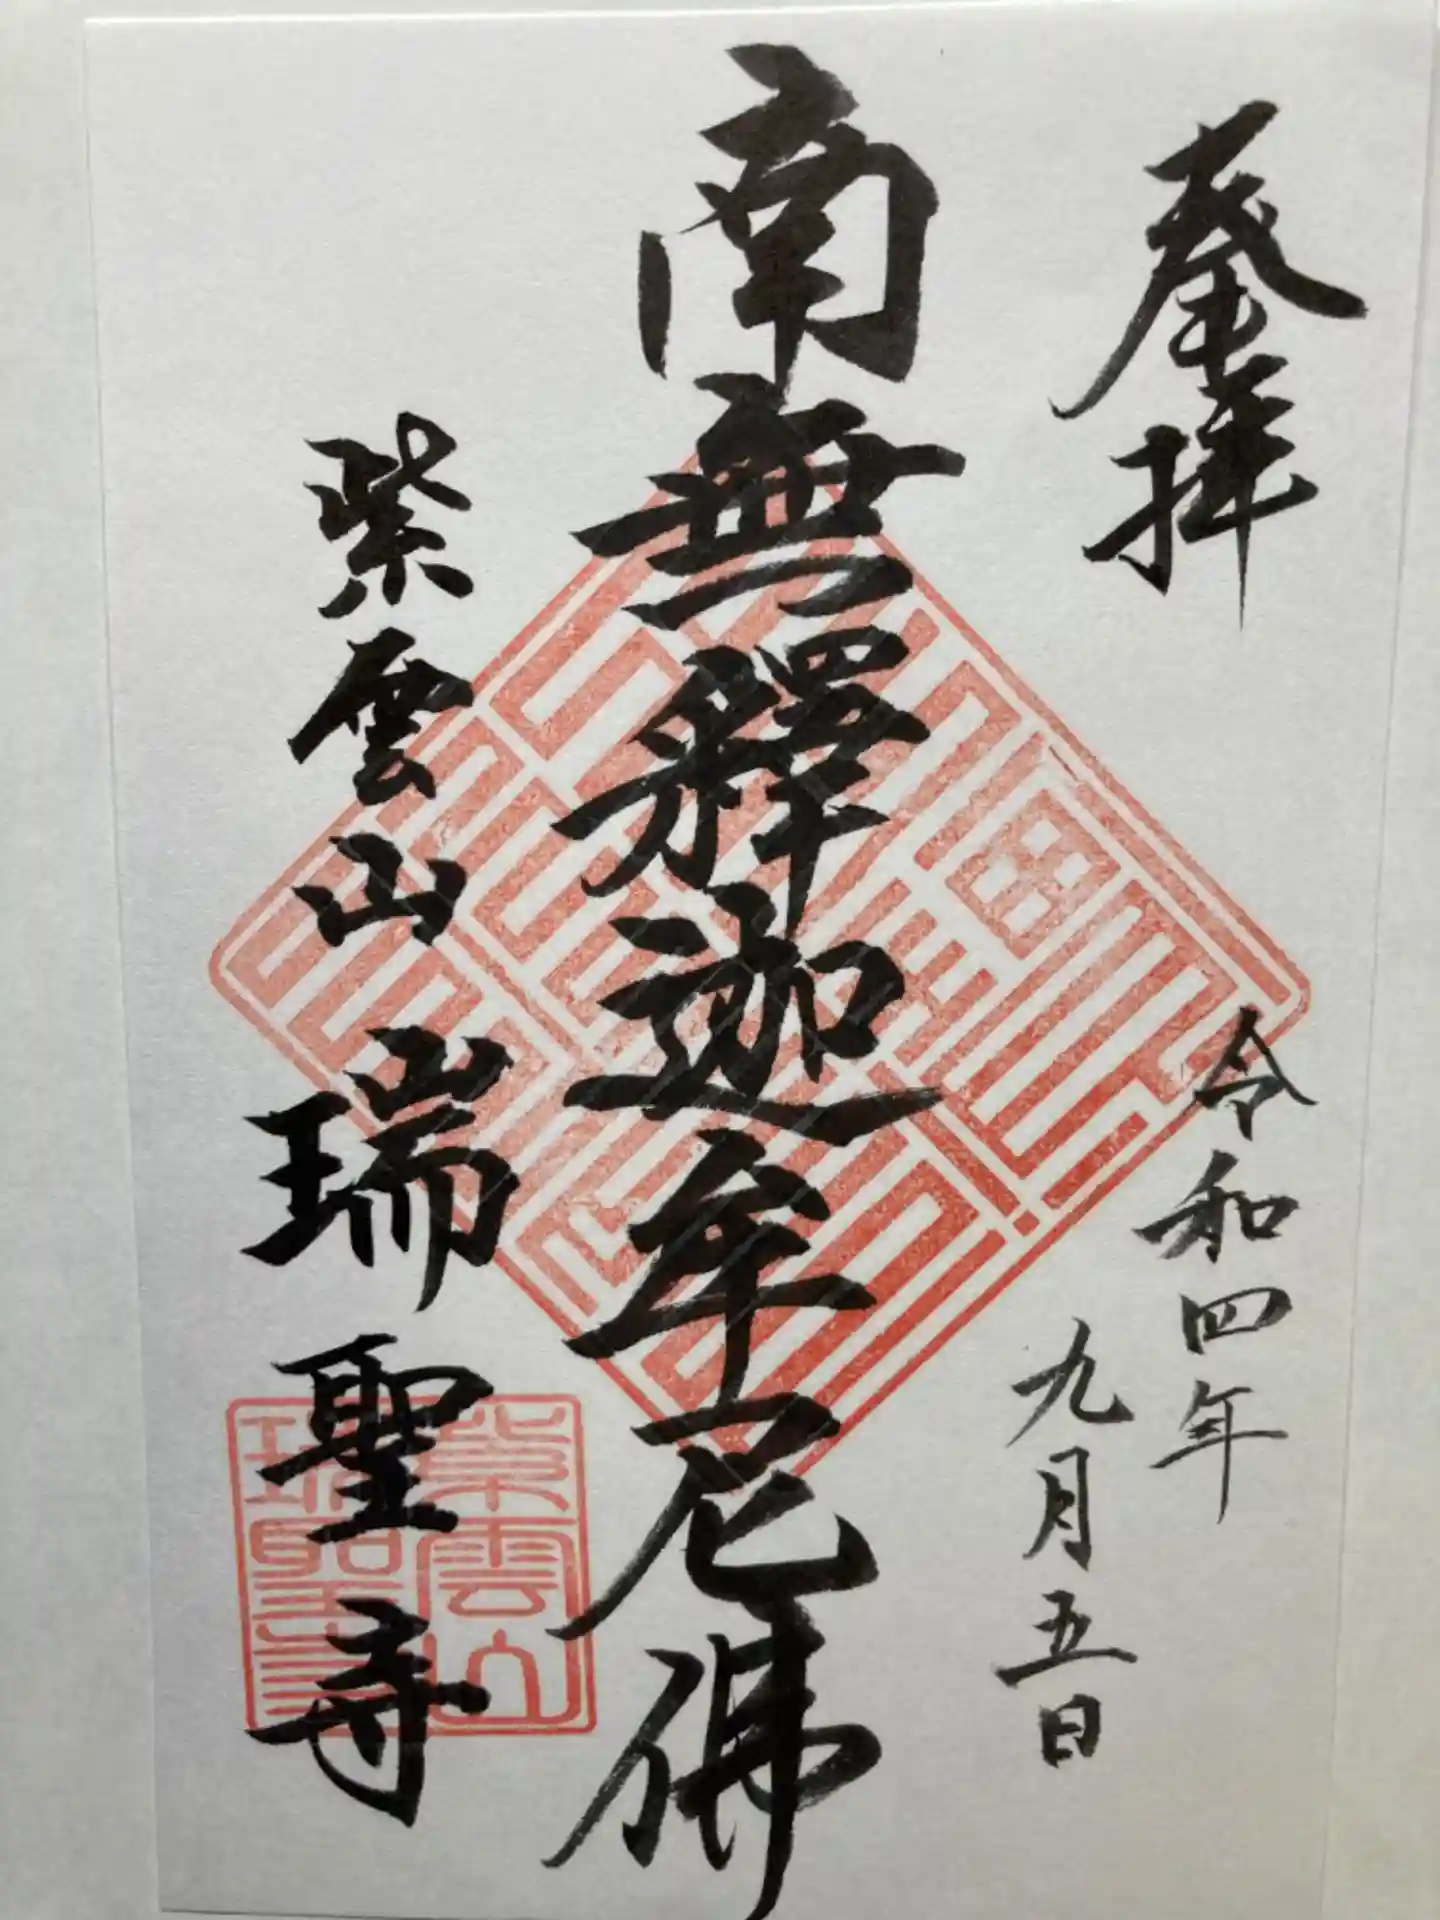 登拝
令和四年
九月五日
南無釋迦牟尼佛
紫雲山 瑞聖寺
紫雲山
瑞聖寺